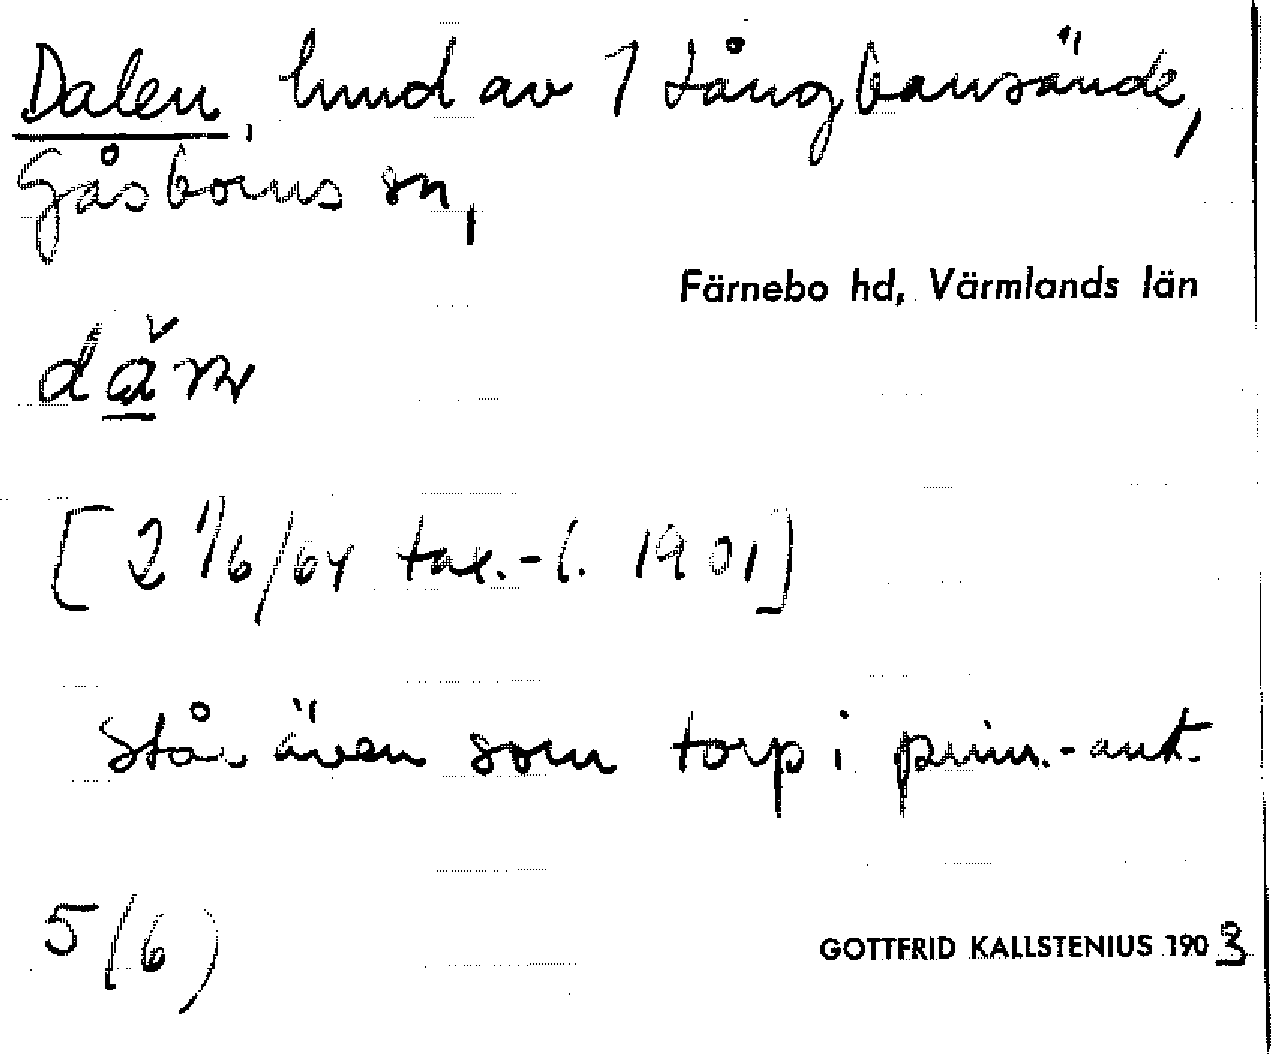 Dalen, hmd av 1 Långbansände,
Gåsborns sn,
Färnebo hd, Värmlands län
[2 1/6/64 tax.-l. 1901]
Står även som torp i prim.-ant.
5(6)
GOTTFRID KALLSTENIUS 1903